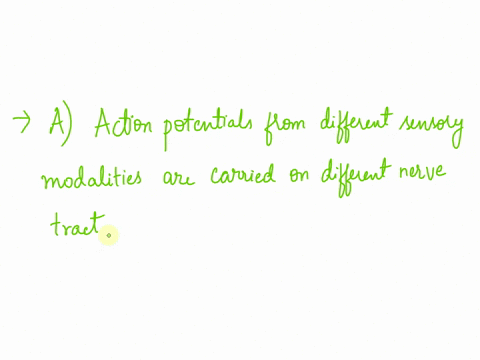 → A) Action potentials from different sensory
modalities are carried on different nerve
tract